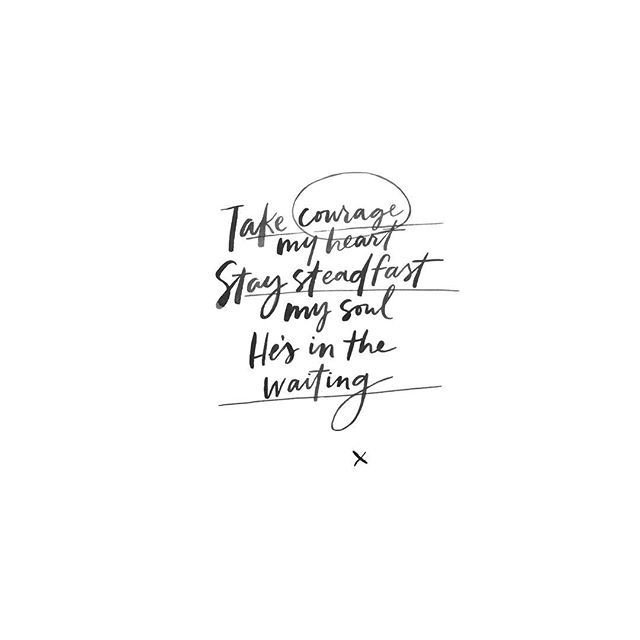 Take courage
my heart
Stay steadfast
my soul
He's in the
waiting
x